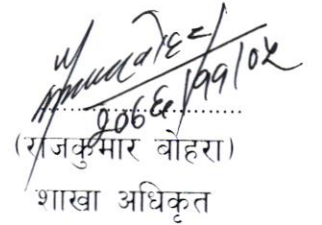 २०६६/११/०५
(राजकुमार वोहरा)
शाखा अधिकृत